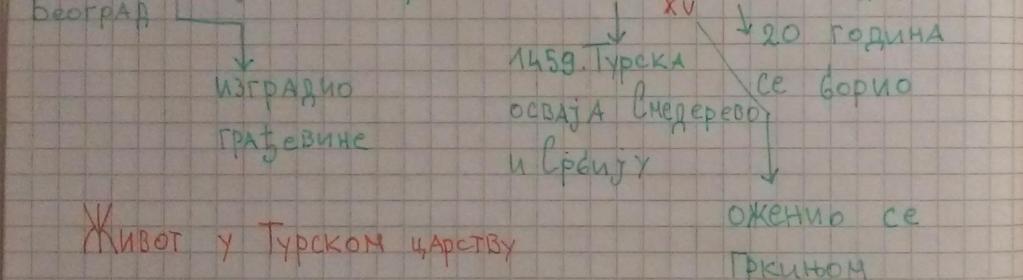 Београд
изградио
грађевине
1459. Турска
осваја Смедерево
и Србију
XV
20 година
се борио
оженио се
Гркињом
Живот у Турском царству